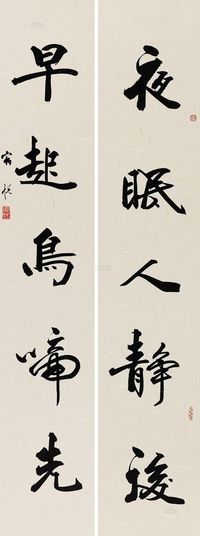 夜眠人静後
早起鳥啼先